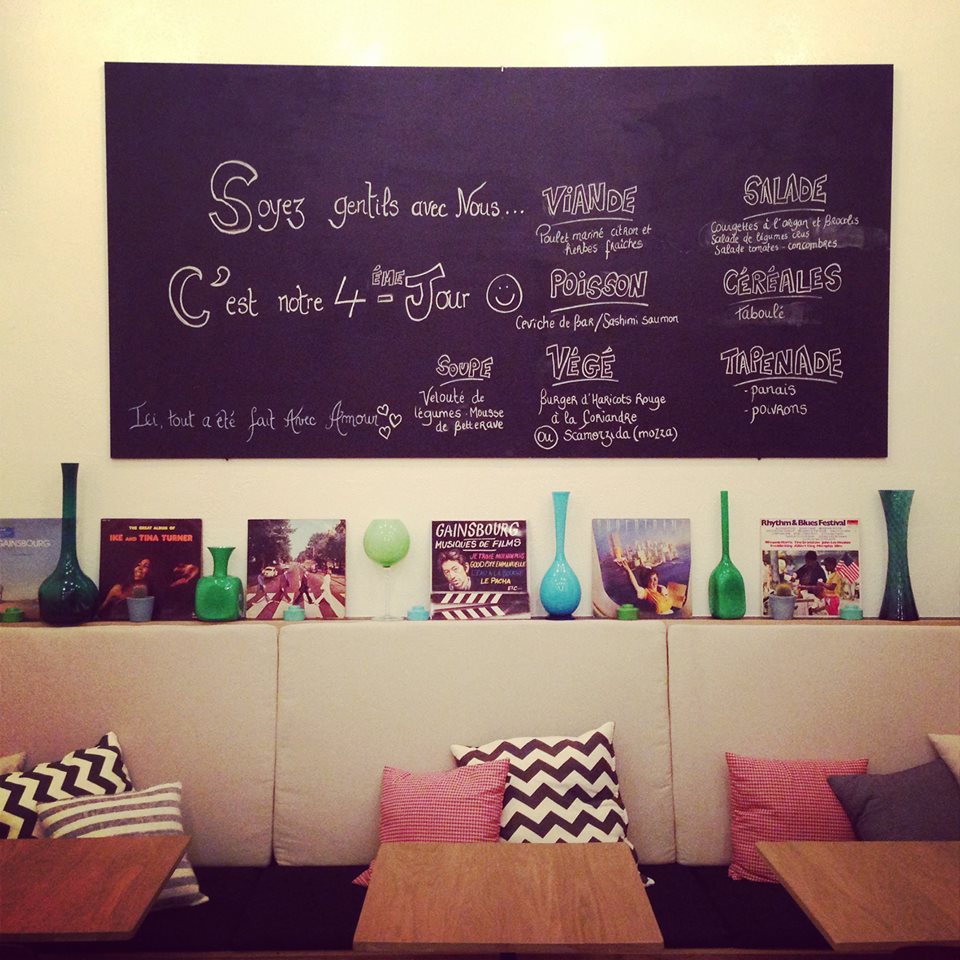 Soyez gentils avec Nous...
C'est notre 4ÈME - Jour
Ici, tout a été fait Avec Amour
SOUPE
Velouté de
légumes. Mousse
de Betterave
VIANDE
Poulet mariné citron et
herbes fraîches
POISSON
Ceviche de BAR/Sashimi saumon
VÉGÉ
Burger d'Haricots Rouge
à la Coriandre
OU SCAMORZIDA (mozza)
SALADE
Courgettes à l'origan et Brocolis
Salade de légumes crus
Salade tomates - concombres
CÉRÉALES
Taboulé
TAPENADE
- panais
- poivrons
GAINSBOURG
THE GREAT ALBUM OF
IKE AND TINA TURNER
GAINSBOURG
MUSIQUES DE FILMS
JE T'AIME MOI NON PLUS
GOOD BYE EMMANUELLE
L'EAU A LA BOUCHE
LE PACHA
ETC...
Rhythm & Blues Festival